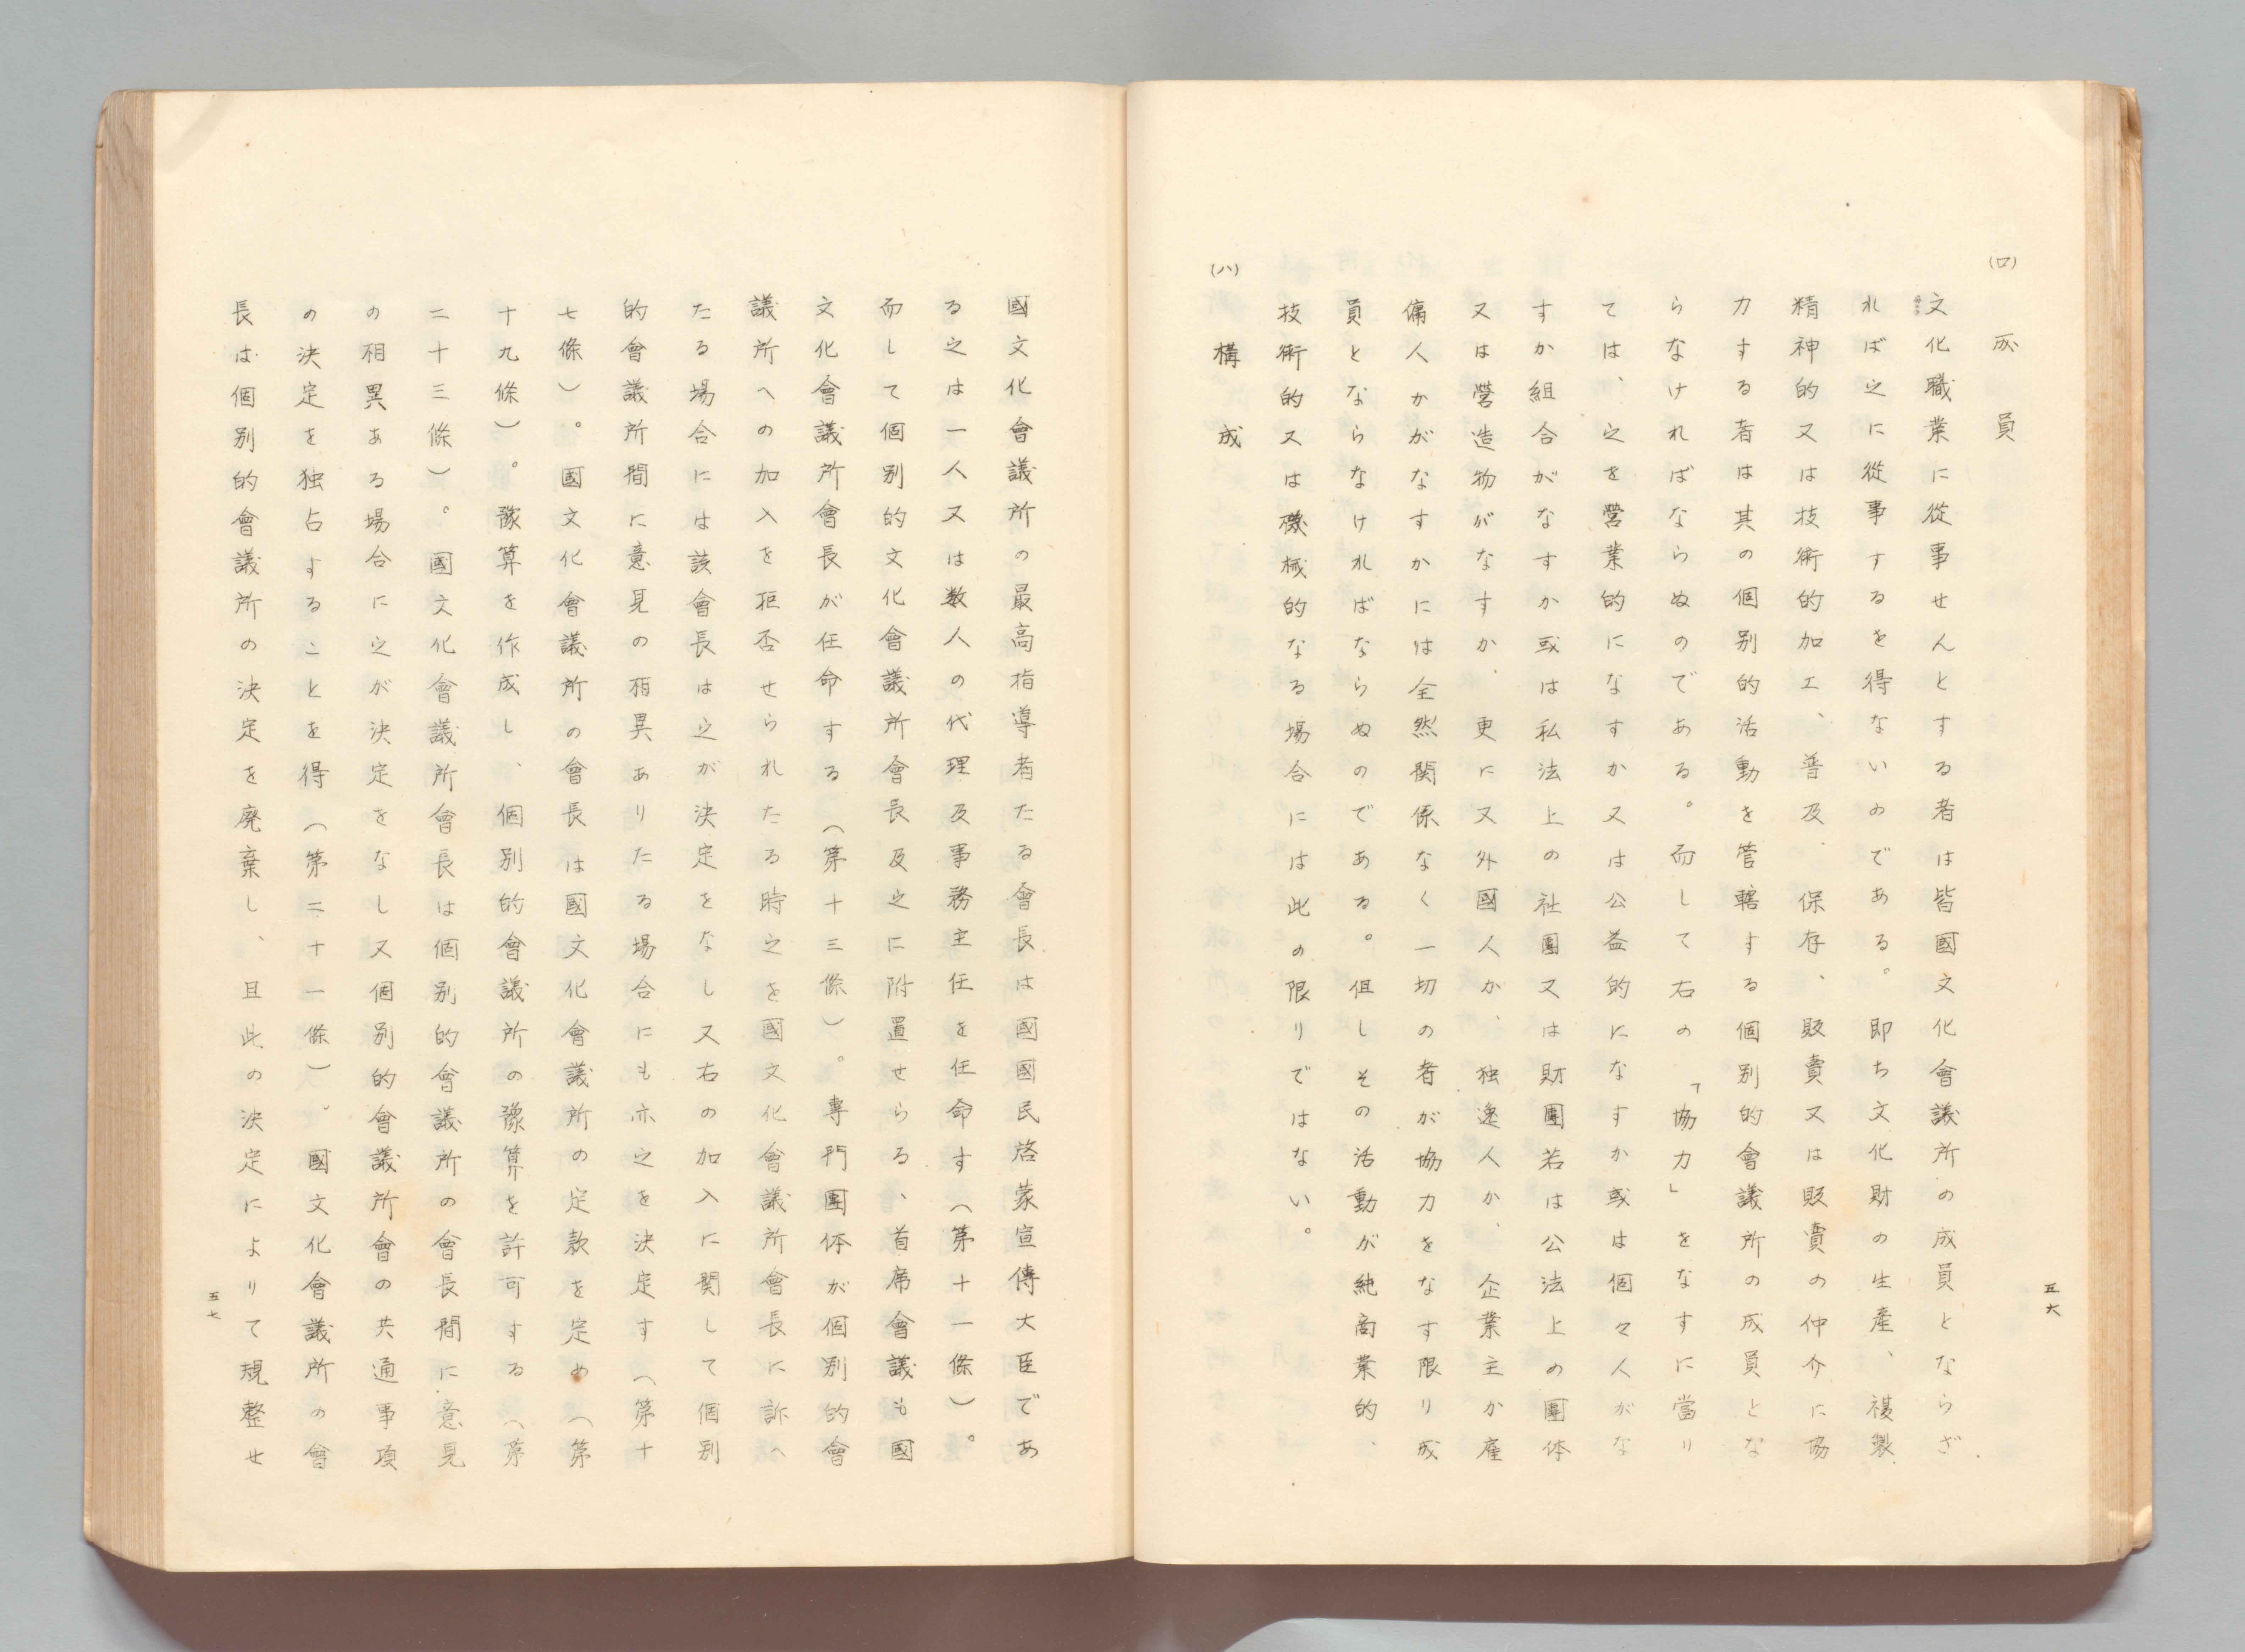 五六
(ロ)　成員
文化職業に從事せんとする者は皆國文化會議所の成員とならざ
れば之に從事するを得ないのである。即ち文化財の生產、複製
精神的又は技術的加工、普及、保存、販賣又は販賣の仲介に協
力する者は其の個別的活動を管轄する個別的會議所の成員とな
らなければならぬのである。而して右の「協力」をなすに當り
ては、之を營業的になすか又は公益的になすか或は個々人がな
すか組合がなすか或は私法上の社團又は財團若は公法上の團体
又は營造物がなすか、更に又外國人か、独逸人か、企業主か雇
傭人かがなすかには全然関係なく一切の者が協力をなす限り成
員とならなければならぬのである。但しその活動が純商業的、
技術的又は機械的なる場合には此の限りではない。
(ハ)　構成
國文化會議所の最高指導者たる會長は國國民啓蒙宣傳大臣であ
る之は一人又は数人の代理及事務主任を任命す（第十一條）。
而して個別的文化會議所會長及之に附置せらる、首席會議も國
文化會議所會長が任命する（第十三條）。專門團体が個別的會
議所への加入を拒否せられたる時之を國文化會議所會長に訴へ
たる場合には該會長は之が決定をなし又右の加入に関して個別
的會議所間に意見の相異ありたる場合にも亦之を決定す（第十
七條）。國文化會議所の會長は國文化會議所の定款を定め（第
十九條）。豫算を作成し、個別的會議所の豫算を許可する（第
二十三條）。國文化會議所會長は個別的會議所の會長間に意見
の相異ある場合に之が決定をなし又個別的會議所會の共通事項
の決定を独占することを得（第二十一條）。國文化會議所の會
長は個別的會議所の決定を廃棄し、且此の決定によりて規整せ
五七